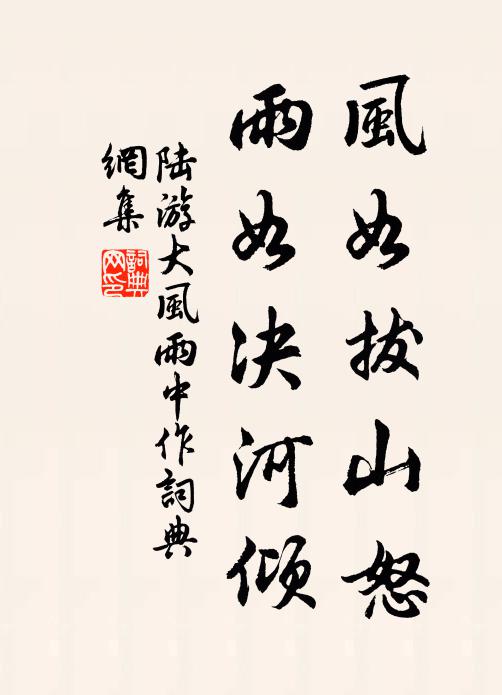 風如拔山怒
雨如决河傾
陆游大風雨中作詞典
網集
詞典
网印